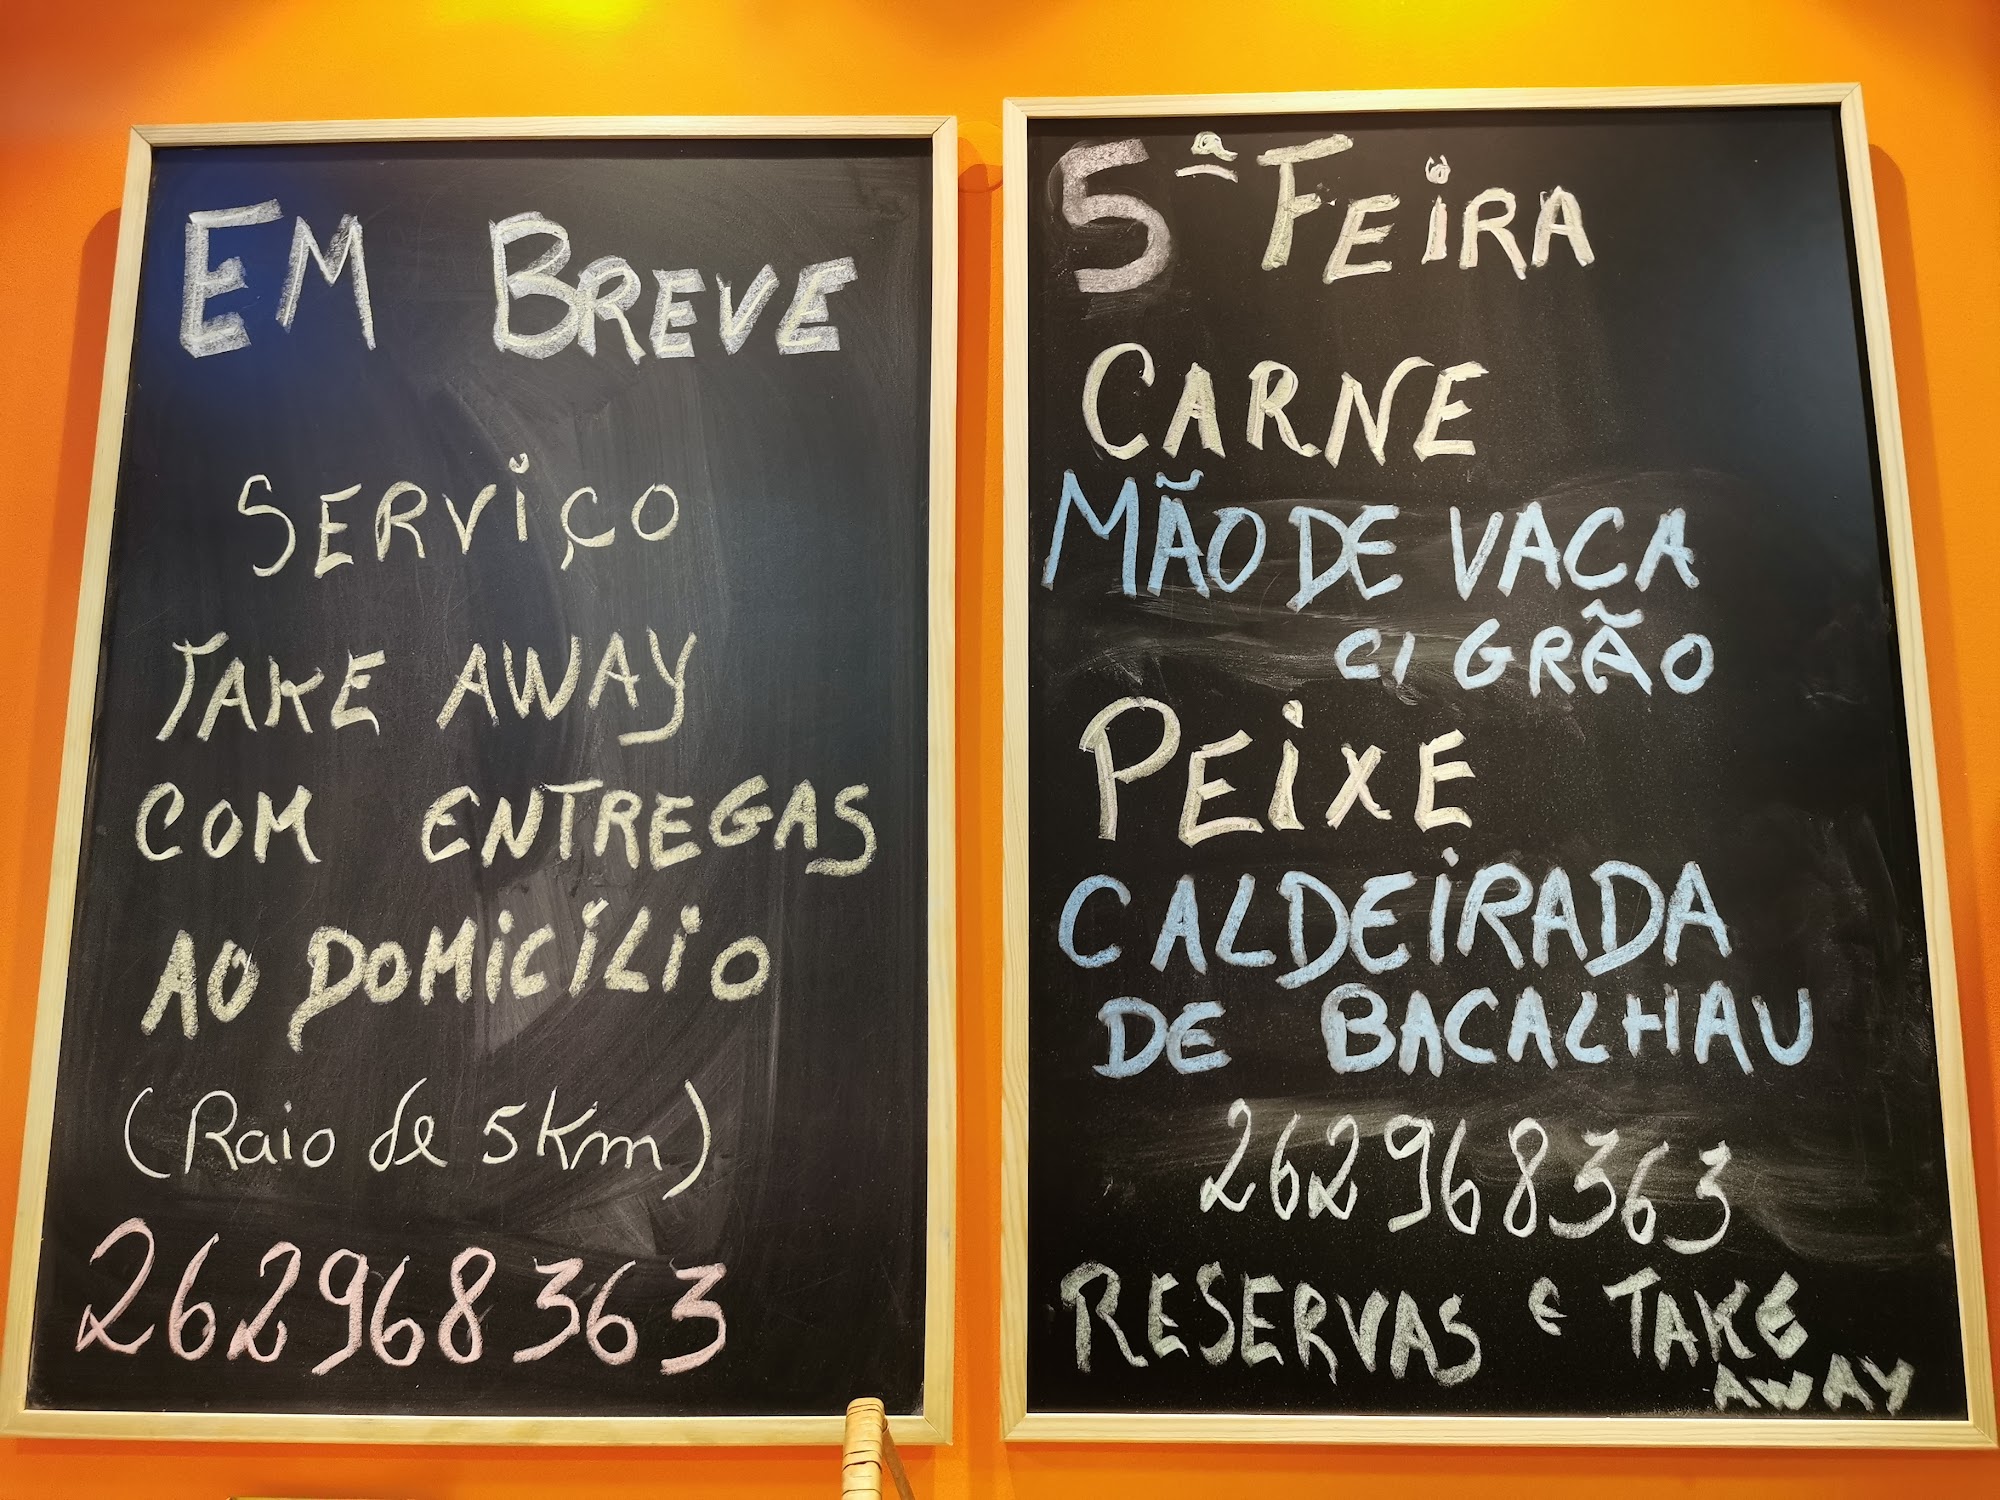 EM BREVE
SERVIÇO
TAKE AWAY
COM ENTREGAS
AO DOMICÍLIO
(Raio de 5Km)
262968363
5ª FEIRA
CARNE
MÃO DE VACA
C/ GRÃO
PEIXE
CALDEIRADA
DE BACALHAU
262968363
RESERVAS E TAKE
AWAY